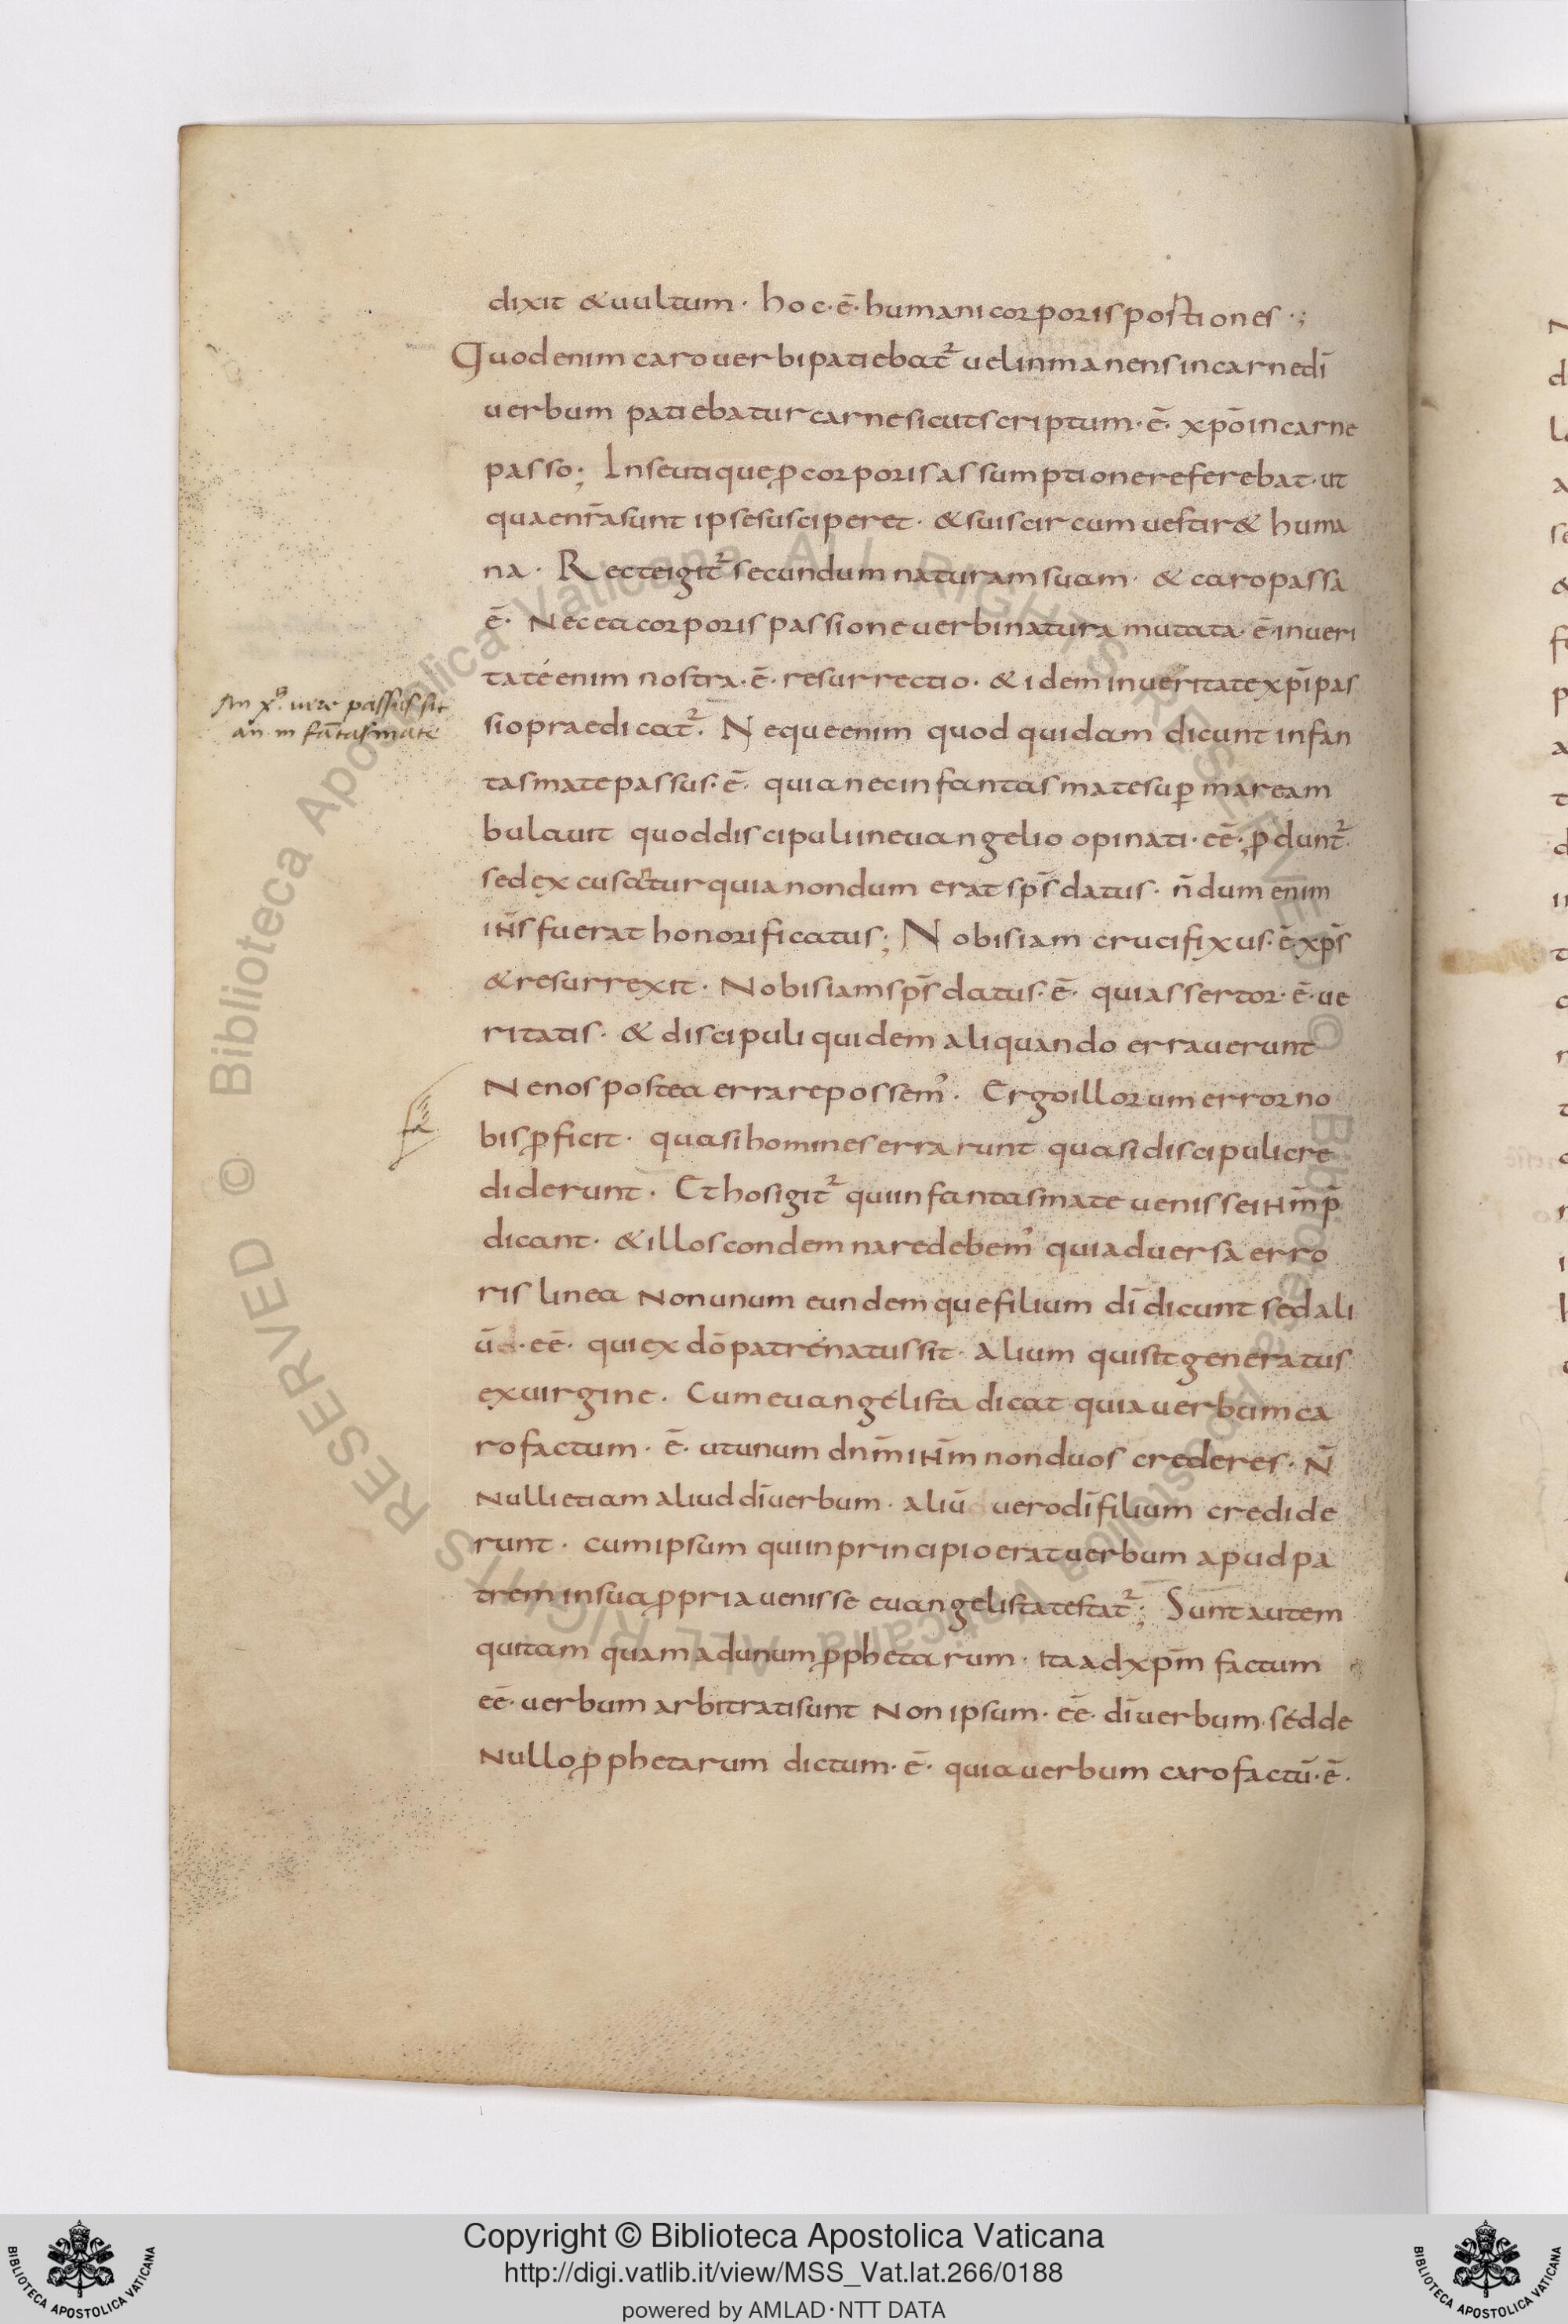 dixit & uultum · hoc · ē · humani corporis portiones ·;
Quod enim caro uerbi patiebat᷑ uel inmanens in carne dī
uerbum patiebatur carne sicut scriptum · ē · xpō in carne
passo; In se utique ꝓ corporis assumptione referebat · ut
quae nr̄a sunt ipse susciperet · & suis circumuestir& huma
na · Recte igit᷑ secundum naturam suam · & caro passa
ē · Nec ea corporis passione uerbi natura mutata · ē · in ueri
tate enim nostra · ē · resurrectio · & idem in ueritate xpī pas
sio praedicat᷑ · Neque enim quod quidam dicunt in fan
tasmate passus · ē · quia nec in fantasmate suꝑ mare am
bulauit quod discipuli in euangelio opinati · eē · ꝓdunt᷑ ·
sed excusatur quia nondum erat sp̄s datus · n̄dum enim
ih̄s fuerat honorificatus; Nobis iam crucifixus · ē · xp̄s
& resurrexit · Nobis iam sp̄s datus · ē · qui assertor · ē · ue
ritatis · & discipuli quidem aliquando errauerunt
Ne nos postea errare possem᾿ · Ergo illorum error no
bis ꝓficit · quasi homines errarunt quasi discipuli cre
diderunt · Et hos igit᷑ qui in fantasmate uenisse ih̄m p̄
dicant · & illos condemnare debem᾿ qui aduersa erro
ris linea Non unum eundemque filium dī dicunt sed ali
ū · eē · qui ex dō patre natus sit · alium qui sit generatus
ex uirgine · Cum euangelista dicat quia uerbum ca
ro factum · ē · ut unum dnm̄ ih̄m non duos crederes · N̄
Nulli etiam aliud dī uerbum · aliū uero dī filium credide
runt · cum ipsum qui in principio erat uerbum apud pa
trem in sua ꝓpria uenisse euangelista testat᷑; Sunt autem
qui tam quam ad unum ꝓphetarum · ita ad xpm̄ factum
eē · uerbum arbitrati sunt Non ipsum · eē · dī uerbum · sed de
Nullo ꝓphetarum dictum · ē · quia uerbum caro factū · ē ·
An xp̄s. uere passus sit
an in fātasmate
Copyright © Biblioteca Apostolica Vaticana
http://digi.vatlib.it/view/MSS_Vat.lat.266/0188
powered by AMLAD·NTT DATA
BIBLIOTECA APOSTOLICA VATICANA
BIBLIOTECA APOSTOLICA VATICANA
© Biblioteca Apostolica Vaticana ALL RIGHTS RESERVED © Biblioteca Apostolica Vaticana ALL RIGHTS RESERVED